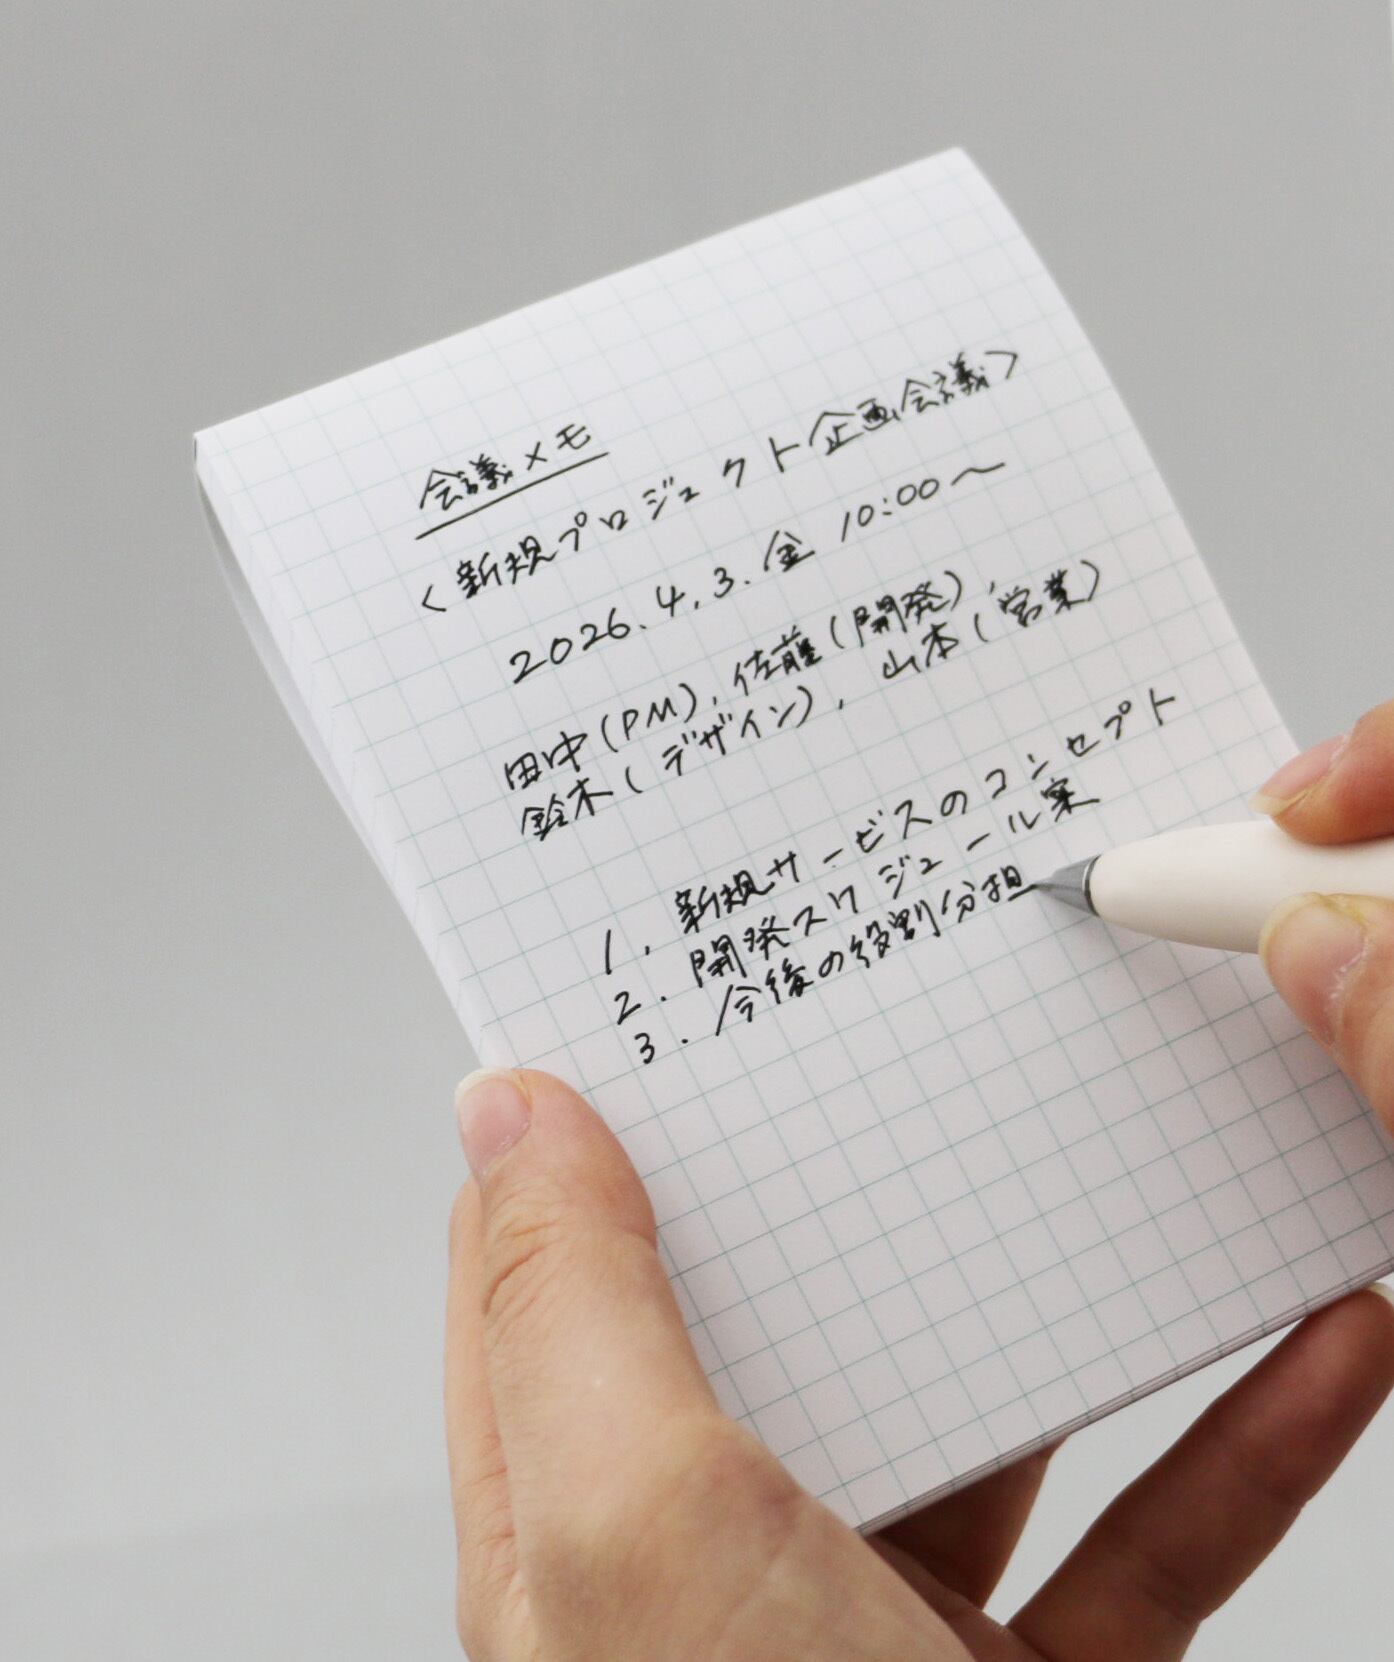 会議メモ
<新規プロジェクト企画会議>
2026.4.3.金 10:00〜
田中(PM),佐藤(開発),
鈴木(デザイン),山本(営業)
1. 新規サービスのコンセプト
2. 開発スケジュール案
3. 今後の役割分担